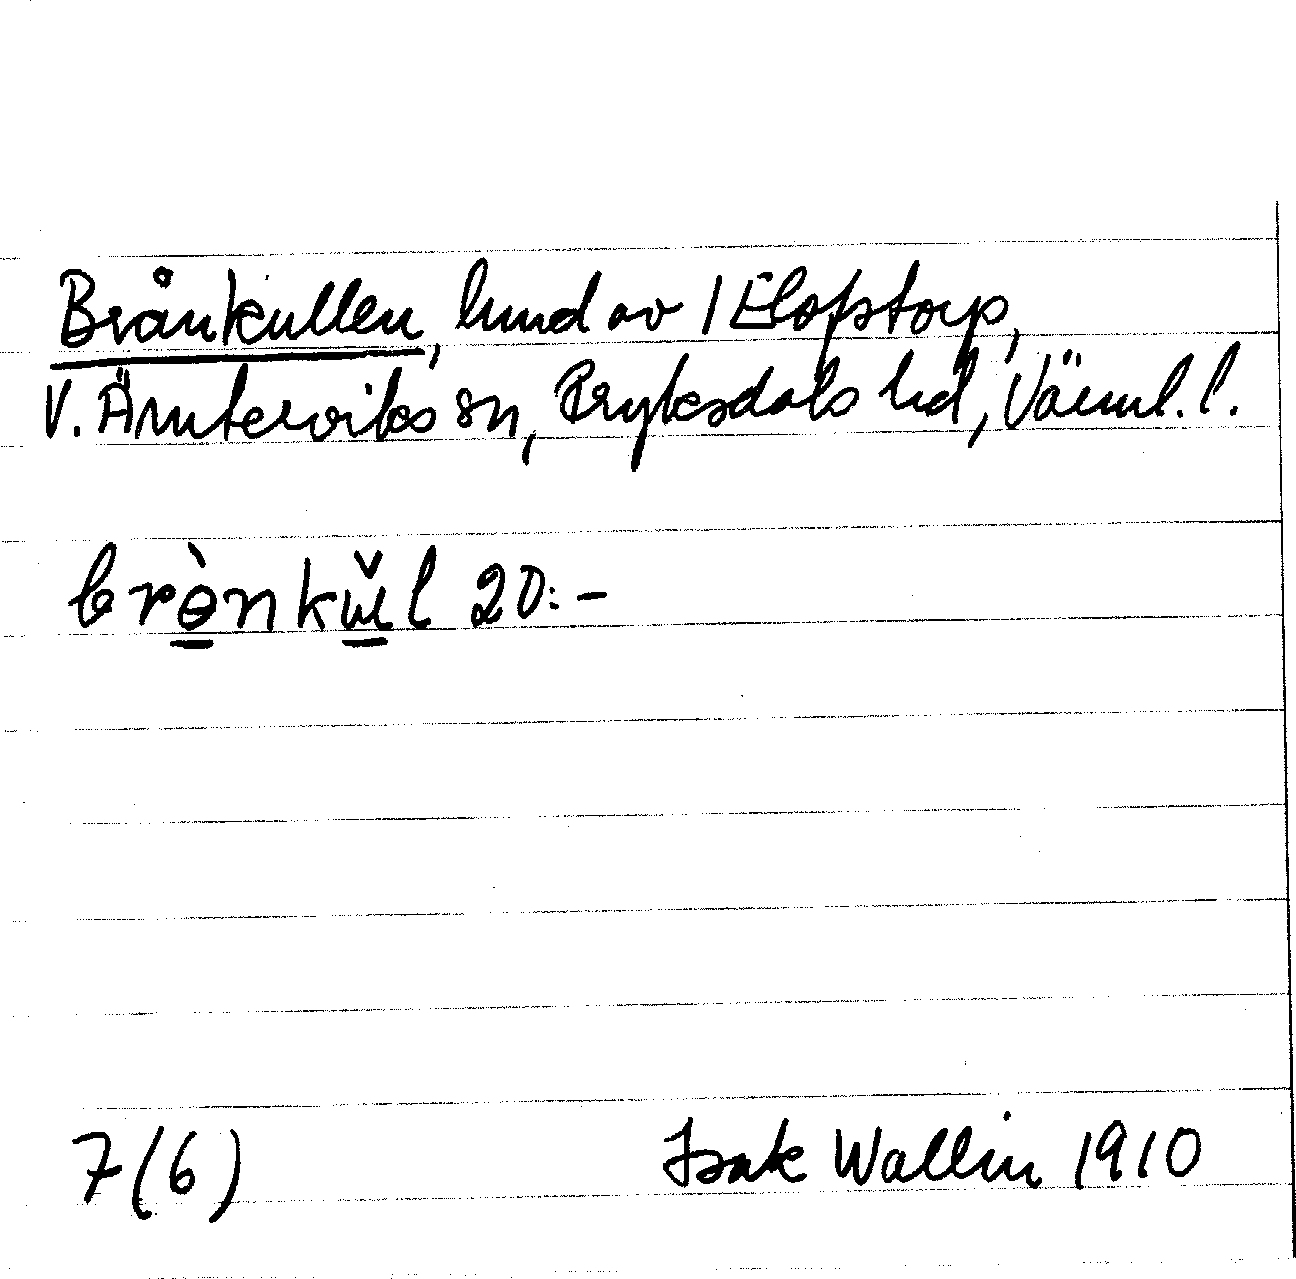 Brånkullen, lund av 1 Elofstorp,
V. Ämterviks sn, Fryksdals hd, Värml. l.
brə̀nkɯ̌l 20:-
7(6) Isak Wallin 1910